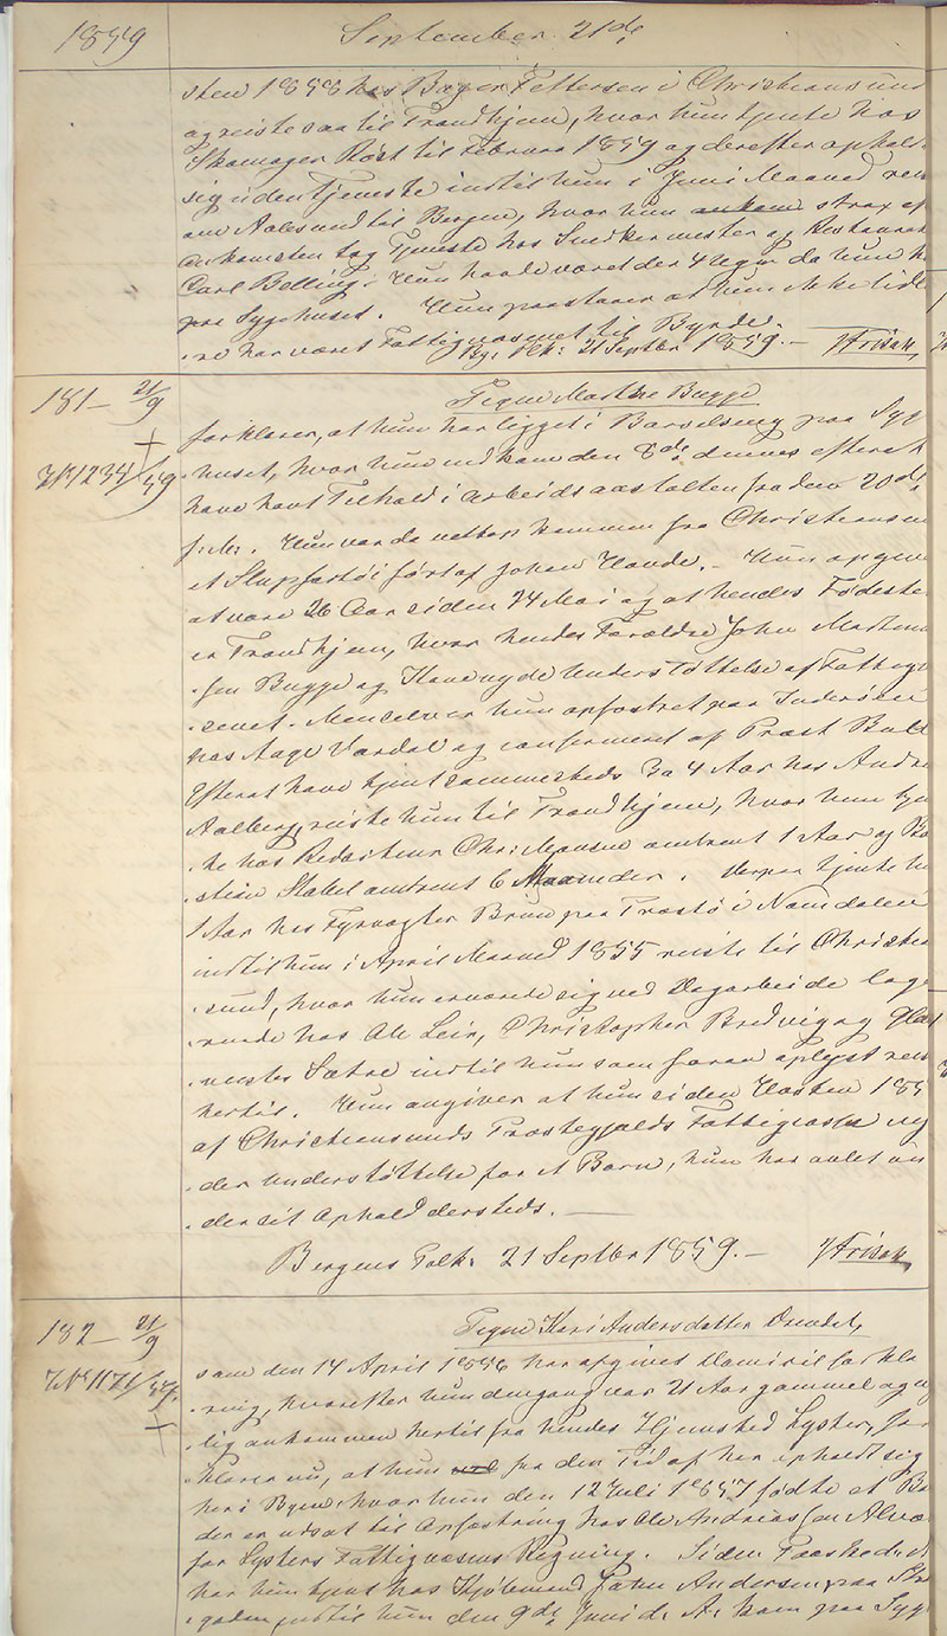 1859
September 21de
sten 1858 hos Bager Pettersen i Christiansund
og reiste saa til Trondhjem, hvor hun tjente hos
Skomager Röst til Februar 1859 og derefter opholdt
sig uden Tjeneste indtil hun i Juni Maaned reis
om Aalesund til Bergen, hvor hun ankom strax ef
ankomsten tog Tjeneste hos Snedkermester og Restaurat
Carl Belling. Hun havde været der 4 Uger da hun k
paa Sygehuset. Hun paastaaer at hun ikke tidl
re har været Fattigvæsenet til Byrde.
Bg: Plk: 21 Septbr 1859. — JFrisak
181 — 21/9
Pigen Marthe Bugge
forklarer, at hun har ligget i Barselseng paa Syge
JN 1234/59
huset, hvor hun indkom den 8de dennes efter at
have havt Tilhold i Arbeidsanstalten fra den 20de
f: M: . Hun var da netop kommen fra Christiansun
et Slupfartöi fört af Johan Havde. — Hun opgive
at være 26 Aar siden 24 Mai og at hendes Födeste
er Trondhjem, hvor hendes Forældre John Morten
sen Bugge og Kone nyde Understöttelse af Fattigv
senet. Men selv er hun opfostret paa Inderöen
hos Aage Vardal og confirmeret af Præst Bull
Efter at have tjent sammesteds 3 a 4 Aar hos Andr
Aalberg, reiste hun til Trondhjem, hvor hun tjen
te hos Redacteur Chr: Monsen omtrent 1 Aar og
stian Stabel omtrent 6 Maaneder. Derpaa tjente hu
1 Aar hos Fyrvogter Brun paa Præstö i Namdalen
indtil hun i April Maaned 1855 reiste til Christian
sund, hvor hun ernærede sig ved Dagarbeide loge
rende hos Ole Leir, Christopher Bredvig og Glar
mester Sætre indtil hun som foran oplyst reis
hertil. Hun angiver at hun siden Hösten 185
af Christiansunds Præstegjelds Fattigcasse ny
der Understöttelse for et Barn, hun har avlet un
der sit Ophold dersteds. —
Bergens Polk: 21 Septbr 1859. — JFrisak
182 — 21/9
Pigen Kari Andersdatter Drendal,
som den 14 April 1856 har afgivet Domicilforkla
JN 1171/57.
ring, hvorefter hun dengang var 21 Aar gammel og ny
lig ankommen hertil fra hendes Hjemsted Lyster, for
klarer nu, at hun fra den Tid af har opholdt sig
her i Byen, hvor hun den 12 Juli 1857 födte et Ba
der er udsat til Opfostring hos Ole Andreassen Alvö
for Lysters Fattigvæsens Regning. Siden Paaske d: A
har hun tjent hos Kjöbmand Johan Andersen paa
gaden indtil hun den 9de Juni d: A: kom paa Syge